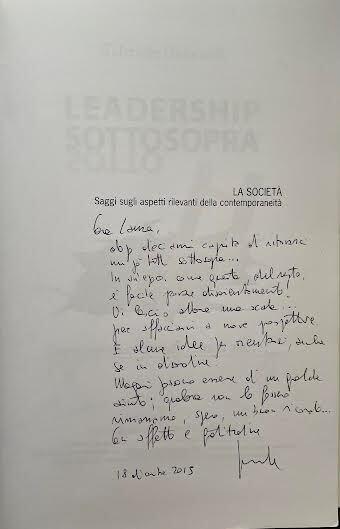 LEADERSHIP
SOTTOSOPRA
LA SOCIETÀ
Saggi sugli aspetti rilevanti della contemporaneità
Cara
dopo dieci anni capita di ritrovarsi
un po' tutti sottosopra...
In un'epoca come questa, del resto,
è facile
Vi lascio allora una scala...
per affacciarvi a nuove prospettive
E alcune idee per
se in disordine.
Magari possono essere di un qualche
aiuto; qualora non lo fossero
rimarranno, spero, un buon ricordo...
Con affetto e gratitudine
18 dicembre 2015